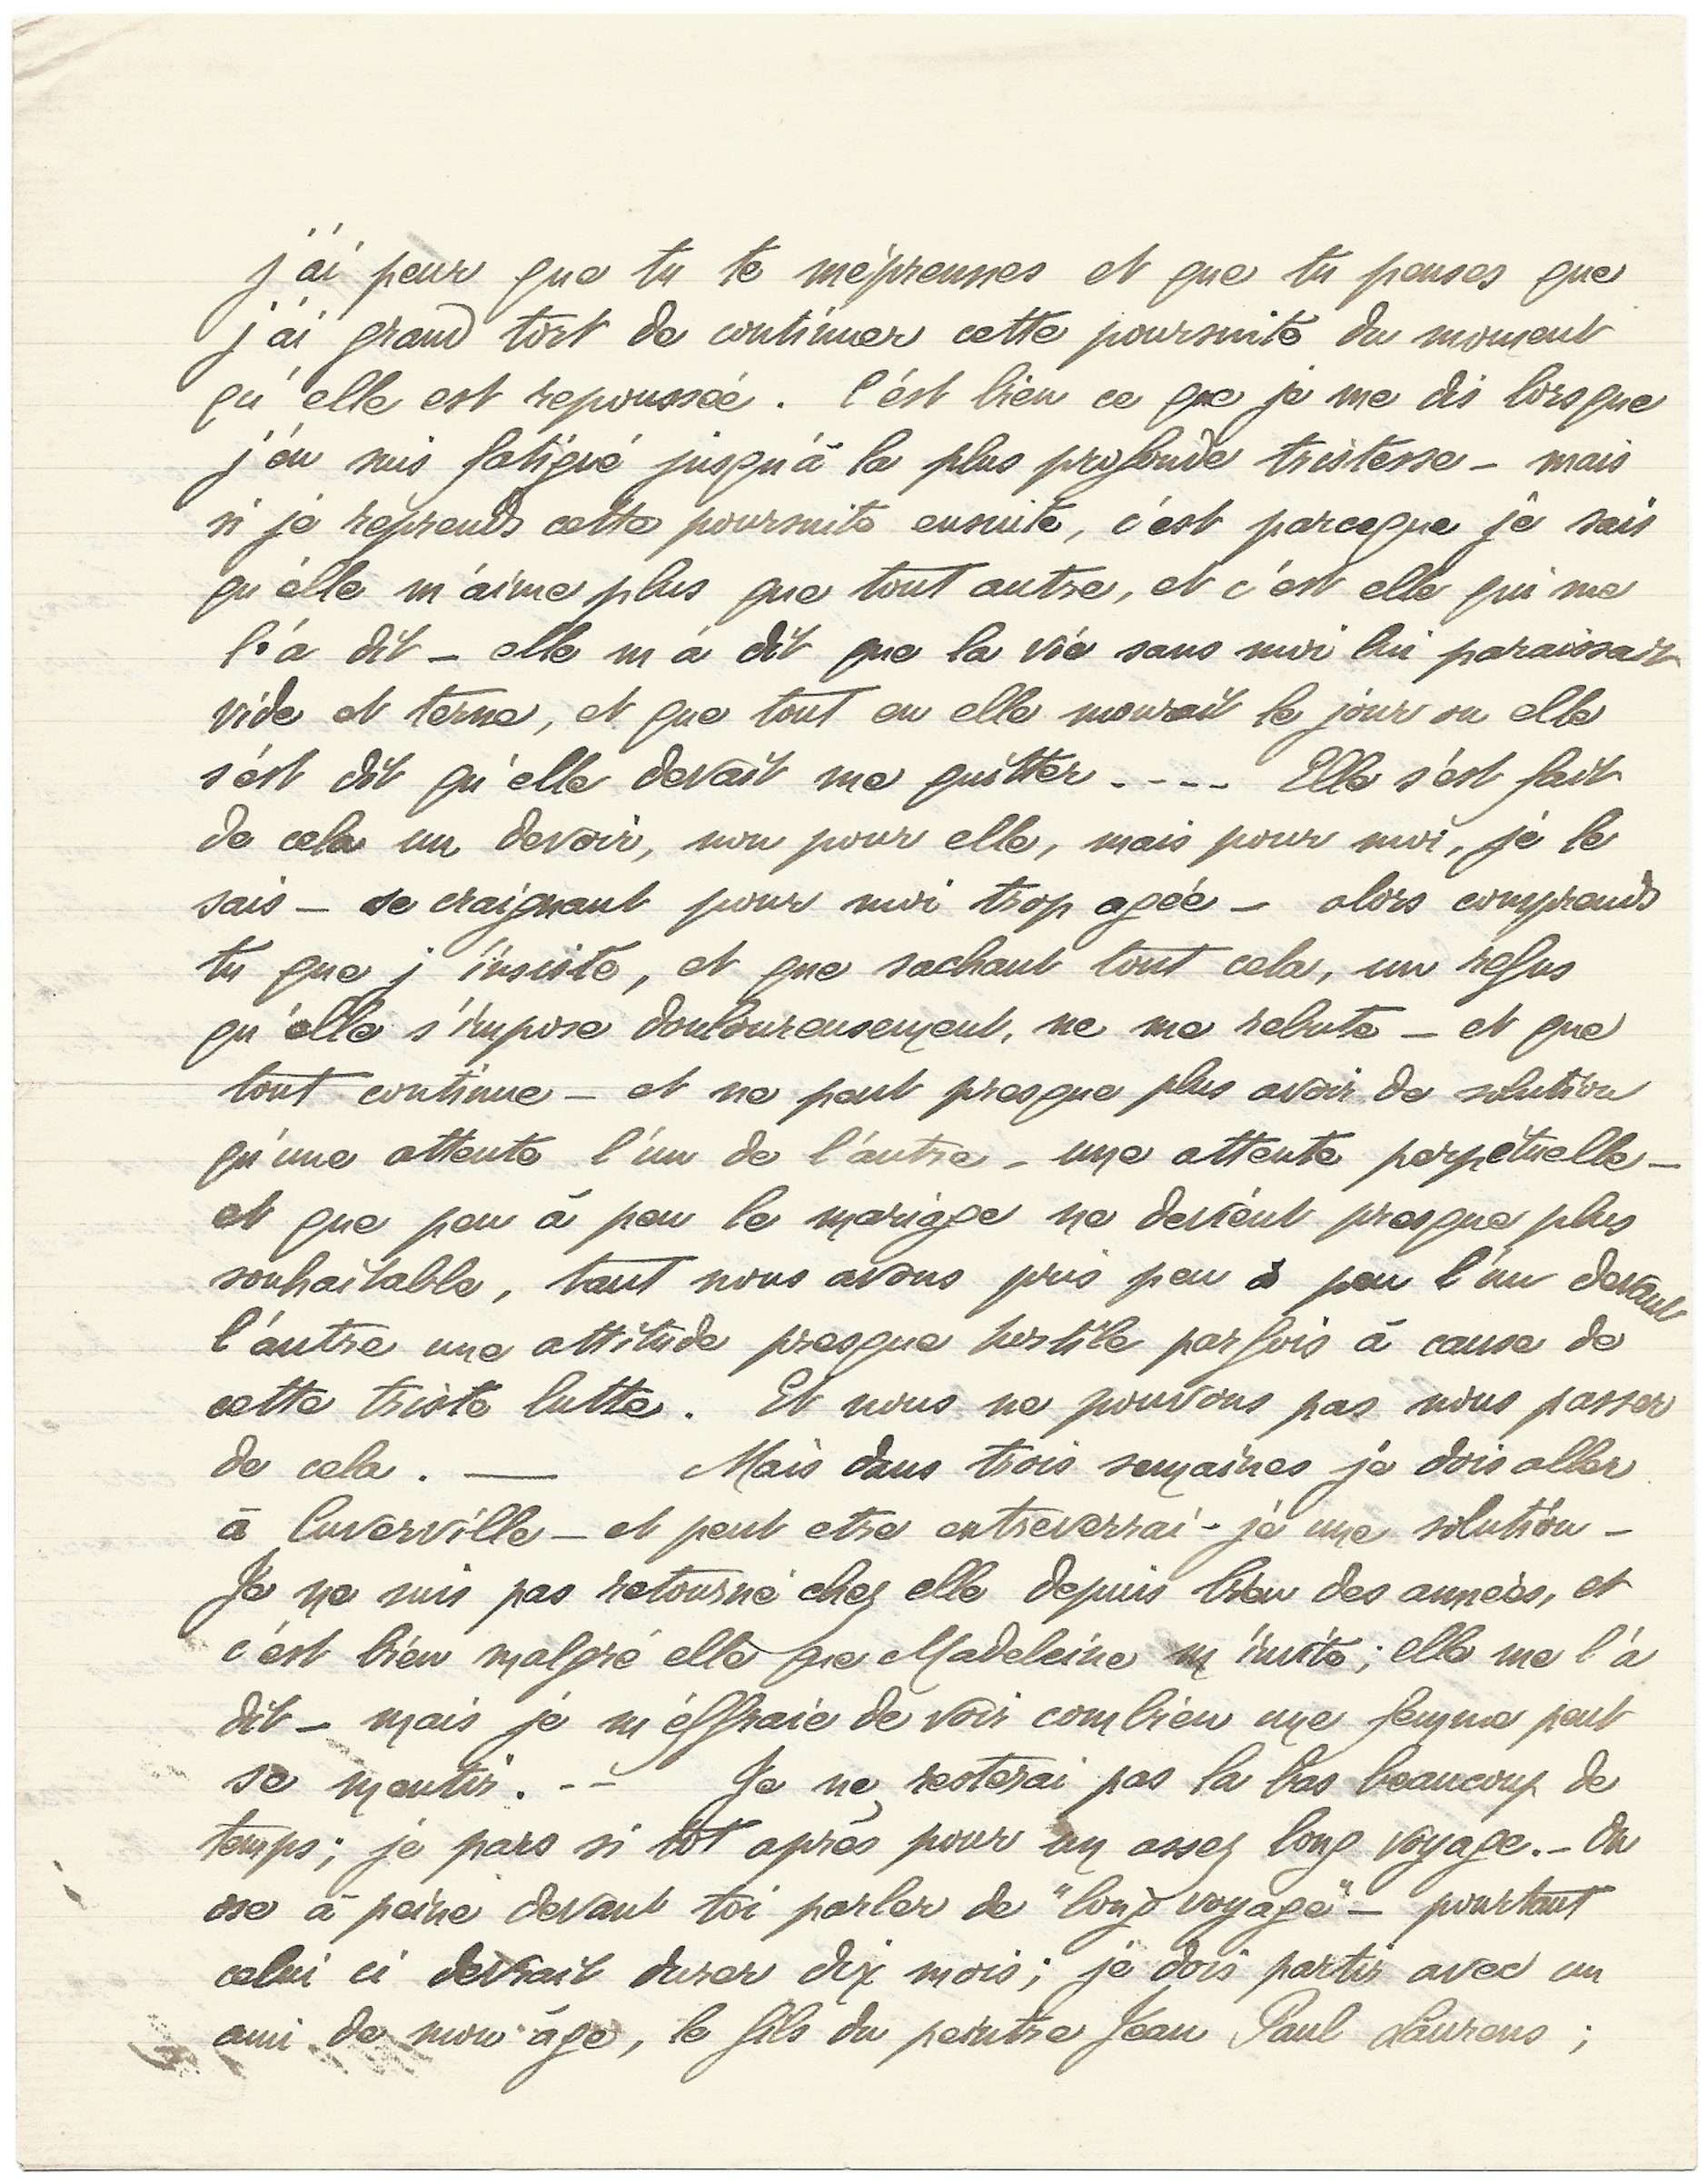 j'ai peur que tu te méprennes et que tu penses que
j'ai grand tort de continuer cette poursuite du moment
qu'elle est repoussée. C'est bien ce que je me dis lorsque
j'en suis fatigué jusqu'à la plus profonde tristesse – mais
si je reprends cette poursuite ensuite, c'est parceque je sais
qu'elle m'aime plus que tout autre, et c'est elle qui me
l'a dit – elle m'a dit que la vie sans moi lui paraissait
vide et terne, et que tout en elle mourait le jour ou elle
s'est dit qu'elle devait me quitter .--- Elle s'est fait
de cela un devoir, non pour elle, mais pour moi, je le
sais – se craignant pour moi trop agée – alors comprends
tu que j'insiste, et que sachant tout cela, un refus
qu'elle s'impose douloureusement, ne me rebute – et que
tout continue – et ne peut presque plus avoir de solution
qu'une attente l'un de l'autre – une attente perpétuelle –
et que peu à peu le mariage ne devient presque plus
souhaitable, tant nous avons pris peu à peu l'un devant
l'autre une attitude presque hostile parfois à cause de
cette triste lutte. Et nous ne pouvons pas nous passer
de cela. — Mais dans trois semaines je dois aller
à Cuverville – et peut etre entreverrai-je une solution –
Je ne suis pas retourné chez elle depuis bien des années, et
c'est bien malgré elle que Madeleine m'invite; elle me l'a
dit – mais je m'effraie de voir combien une femme peut
se mentir. -- Je ne resterai pas la bas beaucoup de
temps; je pars si tôt après pour un assez long voyage. – On
ose à peine devant toi parler de "long voyage" – pourtant
celui ci devrait durer dix mois; je dois partir avec un
ami de mon âge, le fils du peintre Jean Paul Laurens ;